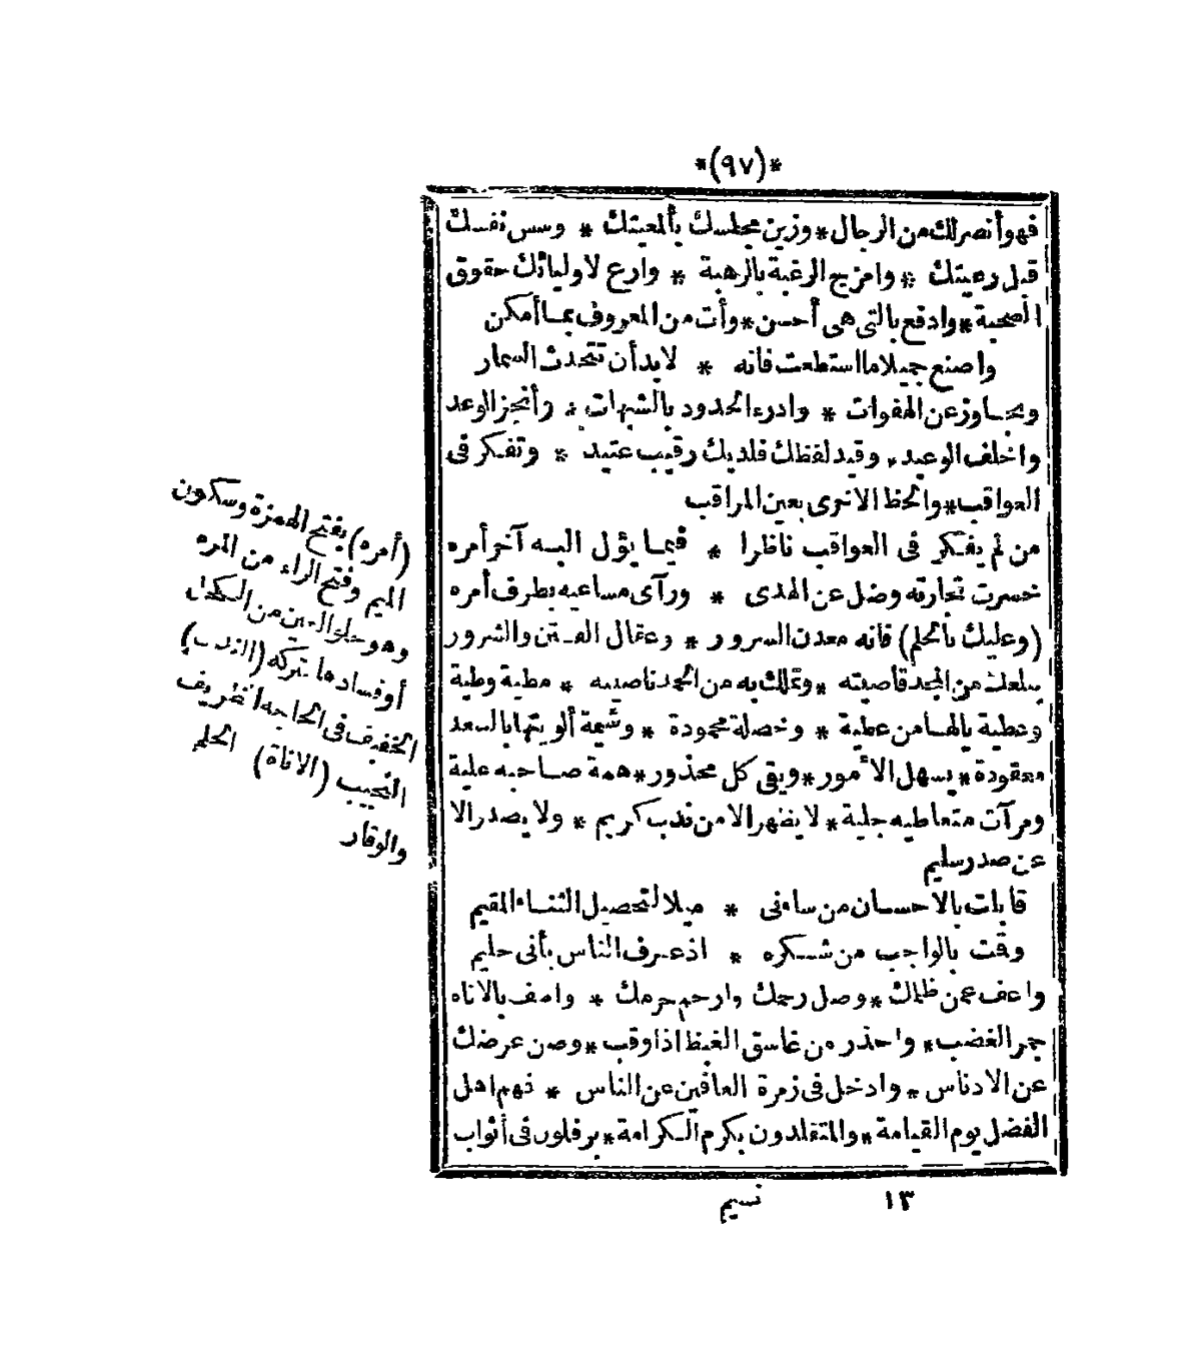 *(٩٧)*
فهو أنصر لك من الرجال * وزين مجلسك بألمعيتك * وسس نفسك
قبل رعيتك * وامزج الرغبة بالرهبة * وارع لاوليائك حقوق
الصحبة * وادفع بالتى هى أحسن * وأت من المعروف بما أمكن
واصنع جميلا ما استطعت فانه * لابد أن تتحدث السمار
وتجاوز عن الهفوات * وادرء الحدود بالشبهات * وأنجز الوعد
واخلف الوعيد * وقيد لفظك فلديك رقيب عتيد * وتفكر فى
العواقب * والحظ الاخرى بعين المراقب
من لم يفكر فى العواقب ناظرا * فيما يؤل اليه آخر أمره
خسرت تجارته وضل عن الهدى * ورآى مساعيه بطرف أمره
(وعليك بالحلم) فانه معدن السرور * وعقال الفتن والشرور
يبلغك من المجد قاصيته * وتملك به من الحمد ناصيته * مطية وطية
وعطية يالها من عطية * وخصلة محمودة * وشيمة ألويتها بالسعد
معقودة * يسهل الامور * ويقى كل محذور * همة صاحبه علية
ومرآت متعاطيه جلية * لا يظهر الا من ندب كريم * ولا يصدر الا
عن صدر سليم
قابلت بالاحسان من ساءنى * ميلا لتحصيل الثناء المقيم
وقمت بالواجب من شكره * اذ عرف الناس بأنى حليم
واعف عمن ظلمك * وصل رحمك وارحم حرمك * واطف بالاناه
جمر الغضب * واحذر من غاسق الغيظ اذا وقب * وصن عرضك
عن الادناس * وادخل فى زمرة العافين عن الناس * فهم اهل
الفضل يوم القيامة * والمتقلدون بكرم الكرامة * يرفلون فى أثواب
١٣
نسيم
(أمره) بفتح الهمزة وسكون
الميم وفتح الراء من المره
وهو خلو العين من الكحل
أو فسادها بتركه (الندب)
الخفيف فى الحاجه الظريف
النجيب (الاناة) الحلم
والوقار